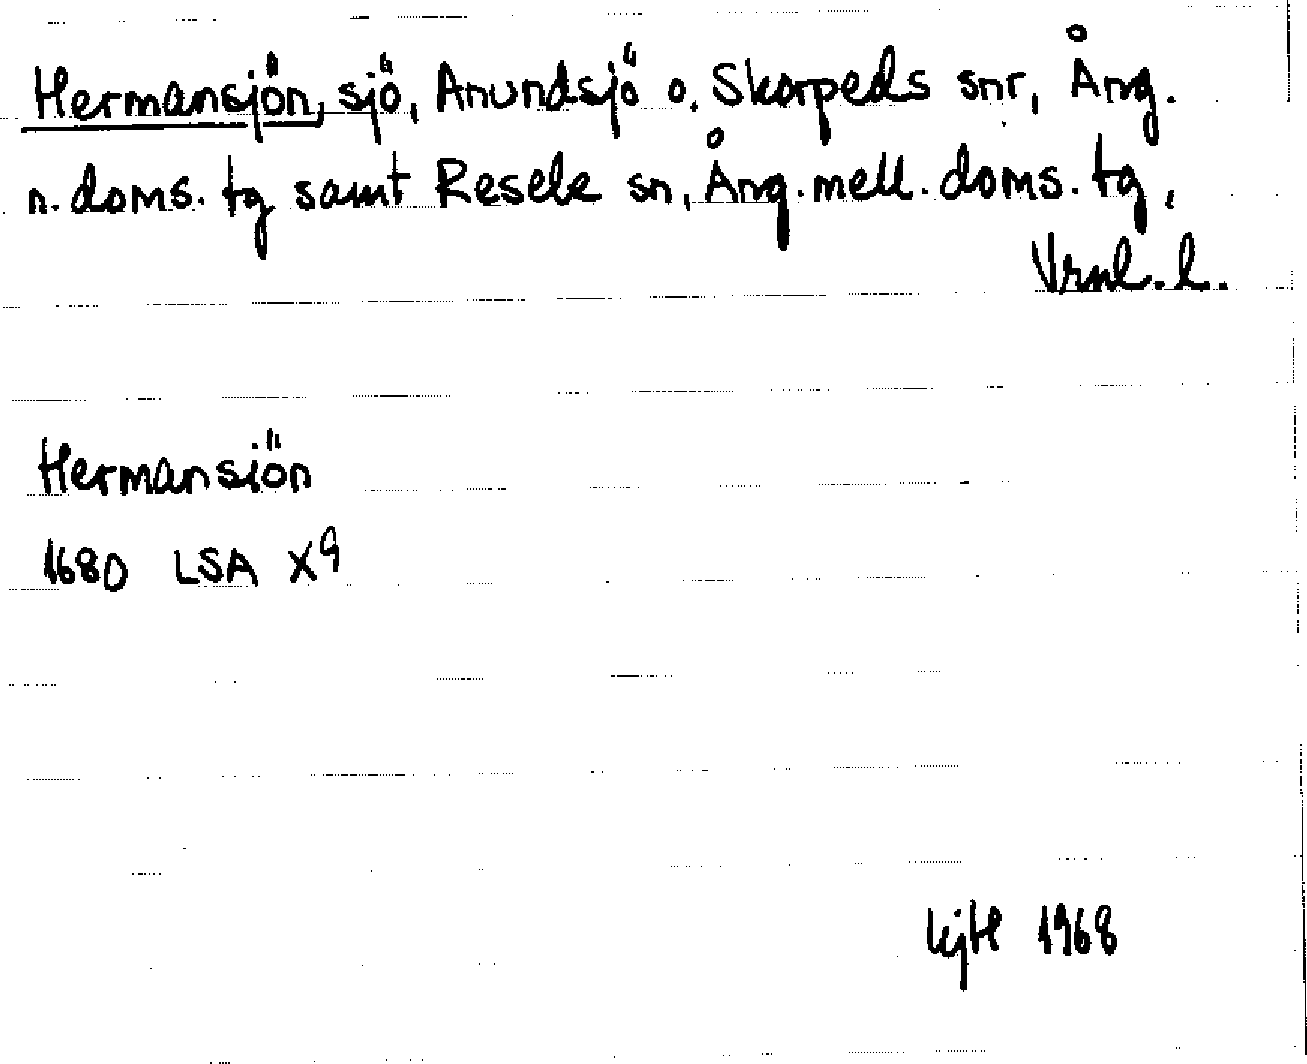 Hermansjön, sjö, Anundsjö o. Skorpeds snr, Ång.
n. doms. tg samt Resele sn, Ång. mell. doms. tg,
Vrnl. l.
Hermansiön
1680 LSA X9
1968